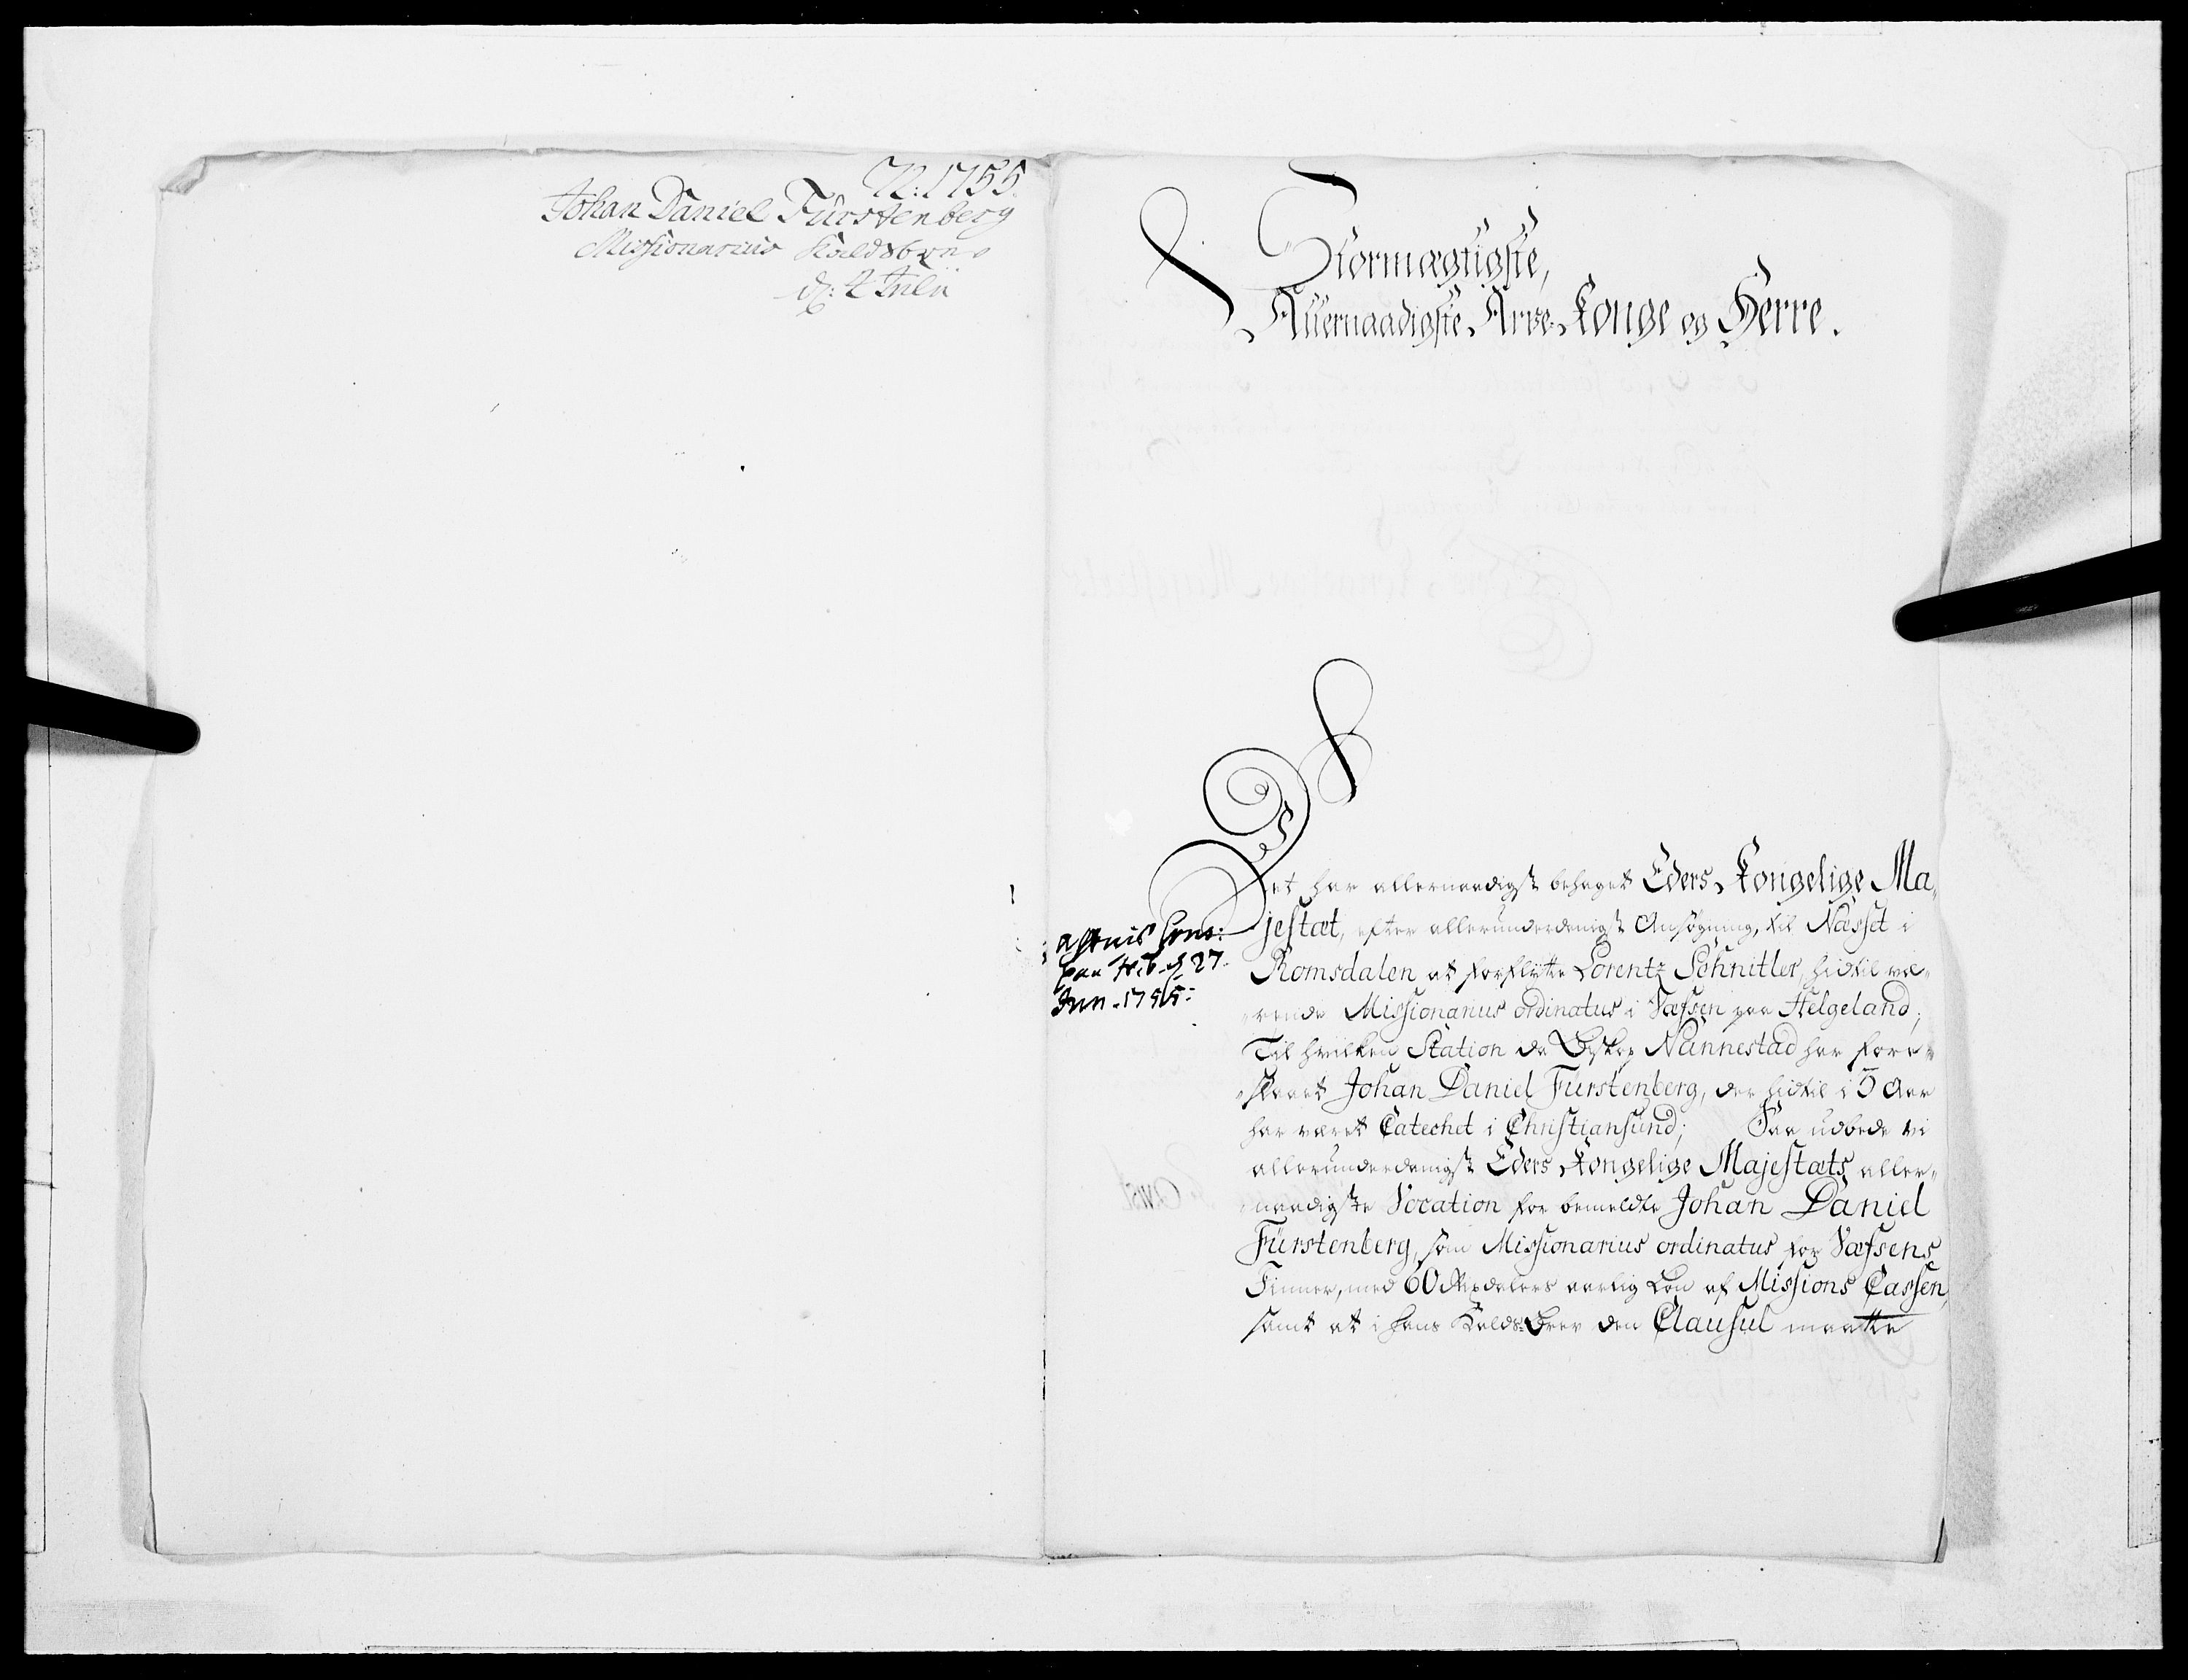 72: 1755.
Johan Daniel Fürstenberg
Missionarius Kaldsbrev
d: 4 Julii
Stormægtigste,
Allernaadigste Arve-Konge og Herre.
Det har allernaadigst behaget Eders Kongelige Ma-
jestæt, efter allerunderdanigst Ansøgning, til Næsset i
Romsdalen at forflytte Lorentz Schnitler, hidtil væ-
rende Missionarius ordinatus i Væfsen paa Helgeland;
Til hvilken Station da Biskop Nannestad har fore-
slaaet Johan Daniel Fürstenberg, der hidtil i 5 Aar
har været Catechet i Christiansund; Saa udbede vi
allerunderdanigst Eders Kongelige Majestæts aller-
naadigste Vocation for bemeldte Johan Daniel
Fürstenberg, som Missionarius ordinatus for Væfsens
Finner, med 60 Rixdalers aarlig Løn af Missions Cassen,
samt at i hans Kalds-Brev den Clausul maatte
paa d 27
Jun. 1755.